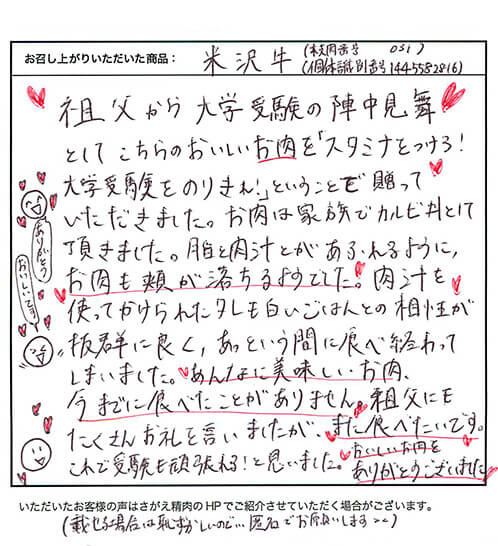 お召し上がりいただいた商品： 米沢牛 (枝肉番号 051)
(個体識別番号 1445582816)
祖父から大学受験の陣中見舞
としてこちらのおいしいお肉を「スタミナをつけろ！
大学受験をのりきれ！」ということで贈って
いただきました。お肉は家族でカルビ丼として
頂きました。脂と肉汁とがあふれるように、
お肉も頬が落ちるようでした。肉汁を
使ってかけられたタレも白いごはんとの相性が
抜群に良く、あっという間に食べ終わって
しまいました。あんなに美味しいお肉、
今までに食べたことがありません。祖父にも
たくさんお礼を言いましたが、また食べたいです。
これで受験も頑張れる！と思いました。
おいしいお肉を
ありがとうございました
ありがとう
おいしいです
いただいたお客様の声はさがえ精肉のHPでご紹介させていただく場合がございます。
(載せる場合は恥ずかしいので…匿名でお願いします＞＜)